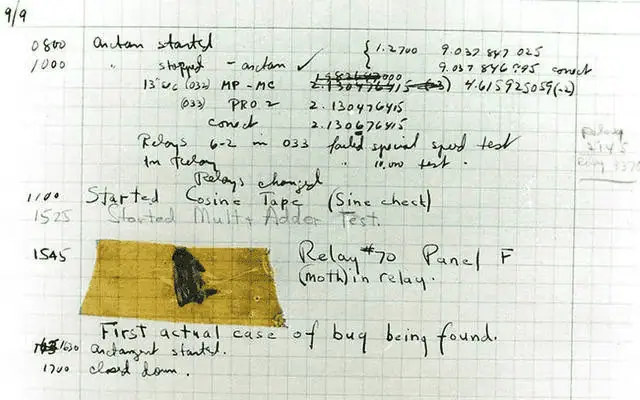 9/9
0800 arctan started
{ 1.2700 9.037 847 025
1000 " stopped - arctan ✓ 9.037 846 995 conect
13"UC (032) MP-MC 2.130476415 4.615925059(-2)
(033) PRO 2 2.130476415
conect 2.130676415
Relays 6-2 in 033 failed special speed test
In Relay " 10.000 test .
Relay
2145
Relay 3370
Relays changed
1100 Started Cosine Tape (Sine check)
1525 Started Mult+ Adder Test.
1545 Relay #70 Panel F
(moth) in relay.
First actual case of bug being found.
1630 arctangent started.
1700 closed down.